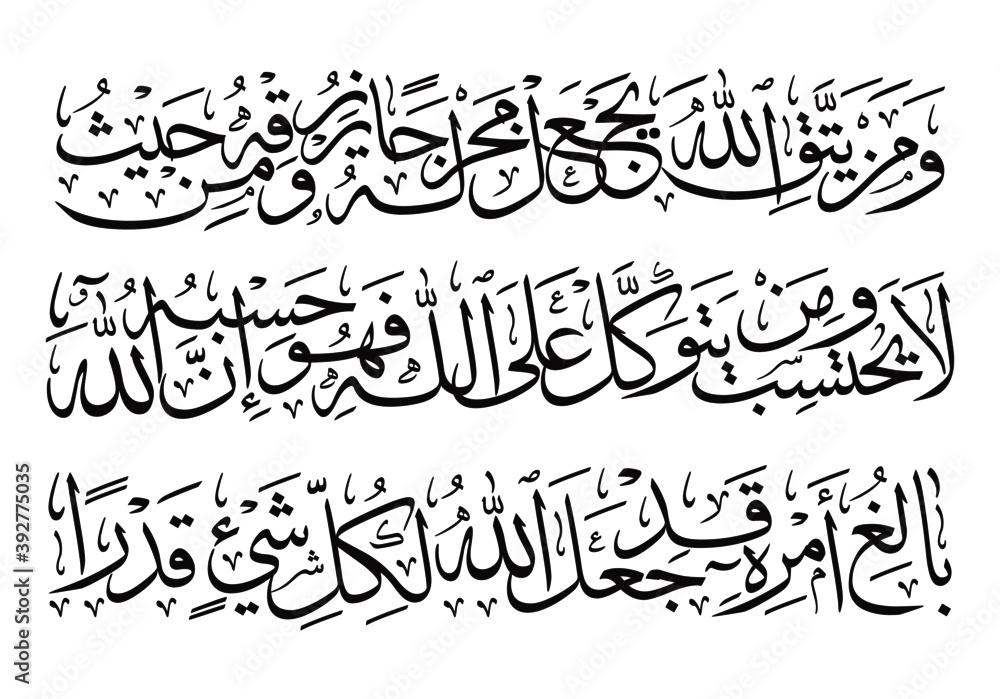 وَمَن يَتَّقِ اللَّهَ يَجْعَل لَّهُ مَخْرَجًا وَيَرْزُقْهُ مِنْ حَيْثُ
لَا يَحْتَسِبُ وَمَن يَتَوَكَّلْ عَلَى اللَّهِ فَهُوَ حَسْبُهُ إِنَّ اللَّهَ
بَالِغُ أَمْرِهِ قَدْ جَعَلَ اللَّهُ لِكُلِّ شَيْءٍ قَدْرًا
Adobe Stock | #392775035